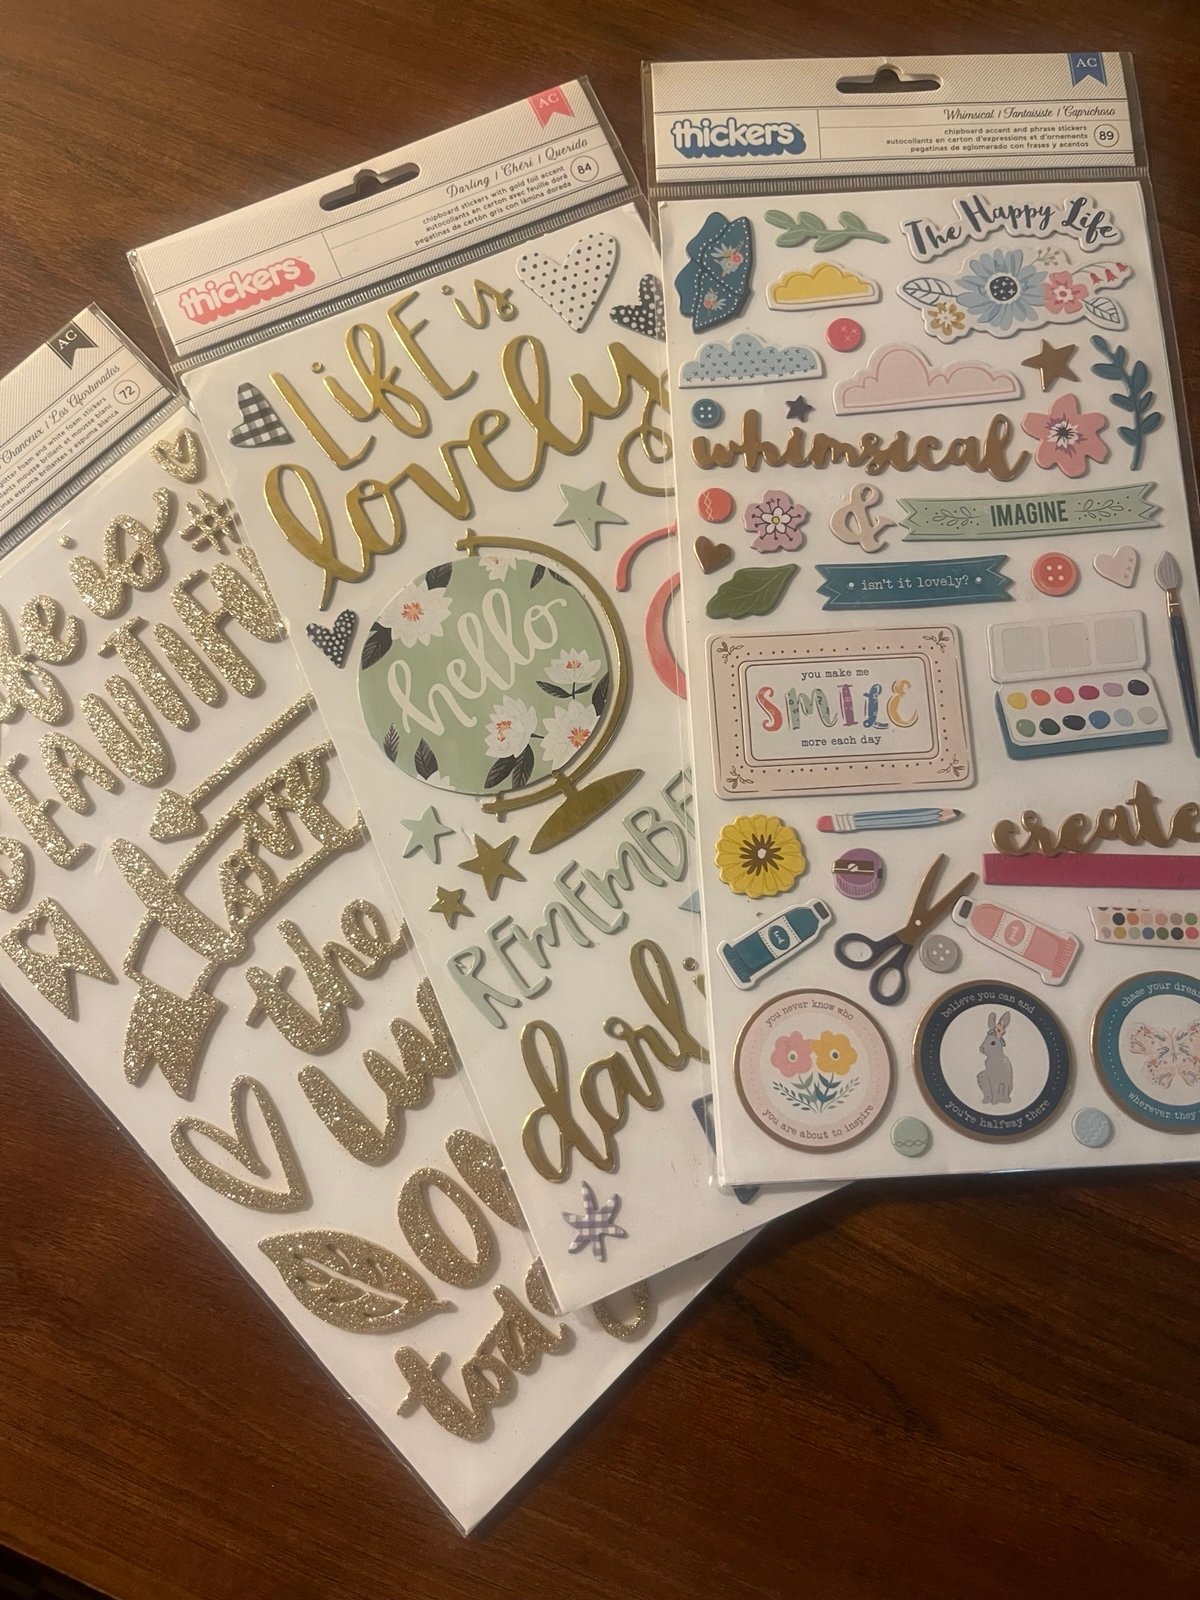 AC
Chanceux / Los Afortunados
glitter foam and white foam stickers
72
be is
#
BEAUTIFU
love
the
today
AC
thickers
Darling / Chéri / Querido
chipboard stickers with gold foil accent
autocollants en carton avec feuille doré
pegatinas de cartón gris con lámina dorada
84
LIFE is
lovely
hello
REMEMBE
darli
AC
thickers
Whimsical / Fantaisiste / Caprichoso
chipboard accent and phrase stickers
autocollants en carton d'expressions et d'ornements
pegatinas de aglomerado con frases y acentos
89
The Happy Life
whimsical
&
IMAGINE
isn't it lovely?
you make me
SMILE
more each day
create
you never know who
you are about to inspire
believe you can and
you're halfway there
chase your drea
wherever they